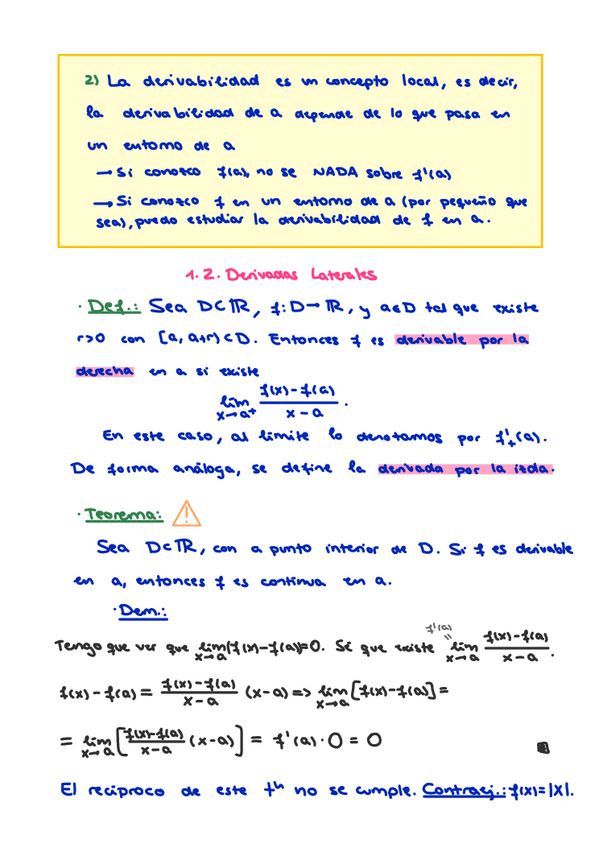 2) La derivabilidad es un concepto local, es decir,
la derivabilidad de a depende de lo que pasa en
un entorno de a
→ Si conozco f(a), no se NADA sobre f'(a)
→ Si conozco f en un entorno de a (por pequeño que
sea), puedo estudiar la derivabilidad de f en a.
1.2. Derivadas Laterales
· Def.: Sea D⊂ℝ, f:D→ℝ, y a∈D tal que existe
r>0 con [a, a+r)⊂D. Entonces f es derivable por la
derecha en a si existe
lim x→a⁺ (f(x)-f(a))/(x-a).
En este caso, al límite lo denotamos por f'₊(a).
De forma análoga, se define la derivada por la izda.
· Teorema: ⚠
Sea D⊂ℝ, con a punto interior de D. Si f es derivable
en a, entonces f es continua en a.
· Dem.:
f'(a)
Tengo que ver que lim x→a (f(x)-f(a))=0. Sé que existe lim x→a (f(x)-f(a))/(x-a).
f(x)-f(a) = (f(x)-f(a))/(x-a) (x-a) => lim x→a [f(x)-f(a)] =
= lim x→a [(f(x)-f(a))/(x-a) (x-a)] = f'(a)·0 = 0
El recíproco de este tʰ no se cumple. Contraej.: f(x)=|x|.